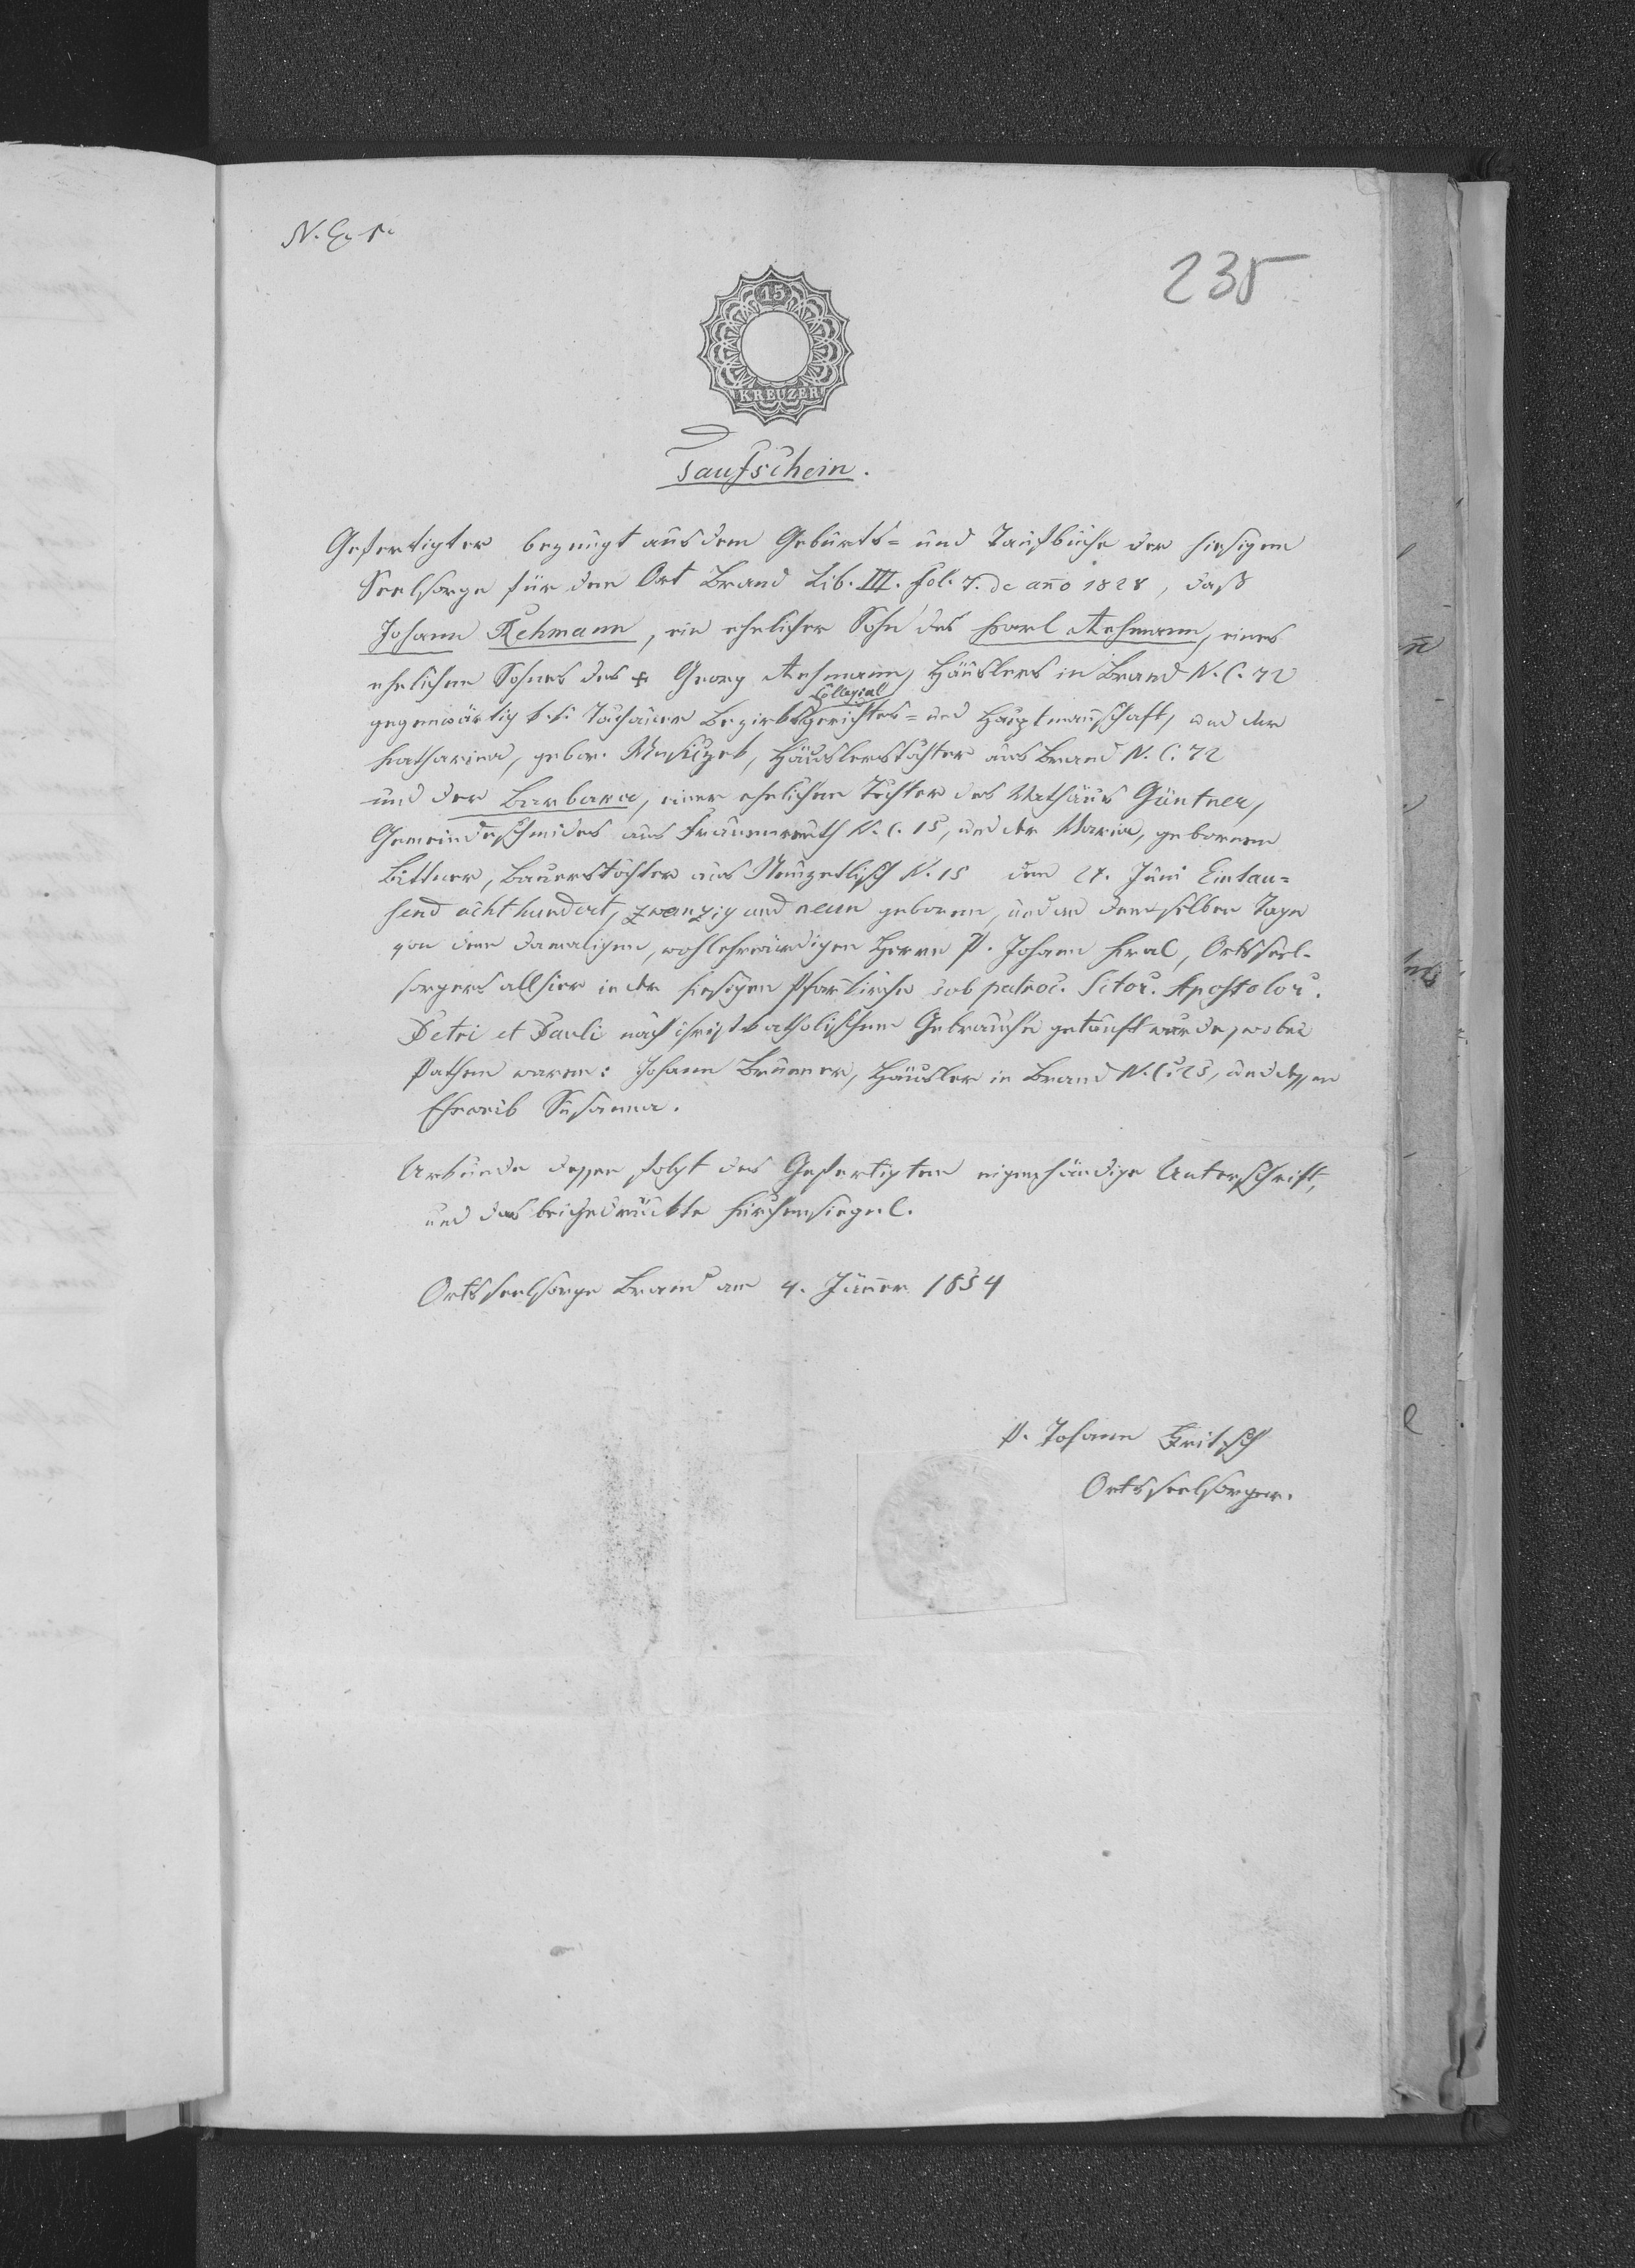 N. E. 1.
235
15
KREUZER
Taufschein.
Gefertigter bezeugt aus dem Geburts= und Taufbuche der hiesigen
Seelsorge für den Ort Brand Lib. III. fol. 7. de año 1828, daß
Johann Rehmann, ein ehelicher Sohn des Karl Rehmann, eines
ehelichen Sohnes des + Georg Rehmann, Häuslers in Brand N. C. 72
gegenwärtig k. k. Tachauer Bezirksgerichtes= und Hauptmannschaft, und der
Collegial
Katharina, gebor. Häuslerstochter aus Brand N. C. 72
und der Barbara, einer ehelichen Tochter des Mathäus Güntner,
Gemeindeschmides aus Frauenreuth N. C. 15, und der Maria, geborenen
Bittner, Bauerstochter aus Neuzetlisch N. 15 den 27. Juni Eintau=
send acht hundert, zwanzig und neun geboren, und an demselben Tage
von dem damaligen, wohlehrwürdigen Herrn P. Johann Kral, Ortsseel-
sorgers allhier in der hiesigen Pfarkirche sub patroc. Sctor. Apostolor.
Petri et Pauli nach christkatholischem Gebrauche getauft wurde, wobei
Pathen waren: Johann Brunner, Häusler in Brand N. C. 25, und dessen
Eheweib Susanna.
Urkunde dessen folgt des Gefertigten eigenhändige Unterschrift,
und das beigedrückte Kirchensiegel.
Ortsseelsorge Brand am 4. Jänner 1854
P. Johann Fritsch
Ortsseelsorger.